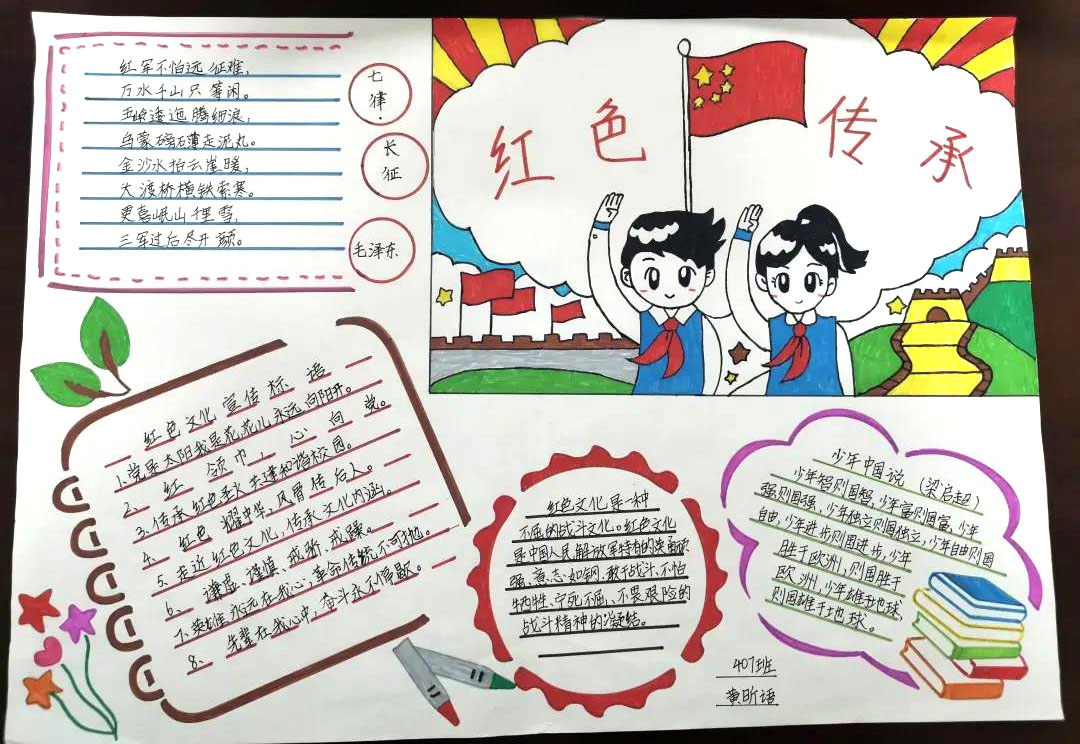 红军不怕远征难，
万水千山只等闲。
五岭逶迤腾细浪，
乌蒙磅礴走泥丸。
金沙水拍云崖暖，
大渡桥横铁索寒。
更喜岷山千里雪，
三军过后尽开颜。
七律·
长征
毛泽东
红色传承
红色文化宣传标语
1.党是太阳我是花，花儿永远向阳开。
2、红领巾，心向党。
3.传承红色圣火共建和谐校园。
4、红色耀中华，风骨传后人。
5、走近红色文化，传承文化内涵。
6、谦虚、谨慎、戒骄、戒躁。
7、英雄永远在我心，革命传统不可抛。
8、先辈在我心中，奋斗永不停歇。
红色文化是一种
不屈的战斗文化。红色文化
是中国人民解放军特有的英勇顽
强、意志如钢、敢于战斗、不怕
牺牲、宁死不屈、不畏艰险的
战斗精神的凝结。
少年中国说（梁启超）
少年智则国智，少年富则国富，少年
强则国强、少年独立则国独立，少年自由则国
自由，少年进步则国进步，少年
胜于欧洲，则国胜于
欧洲，少年雄于地球，
则国雄于地球。
407班
黄昕语